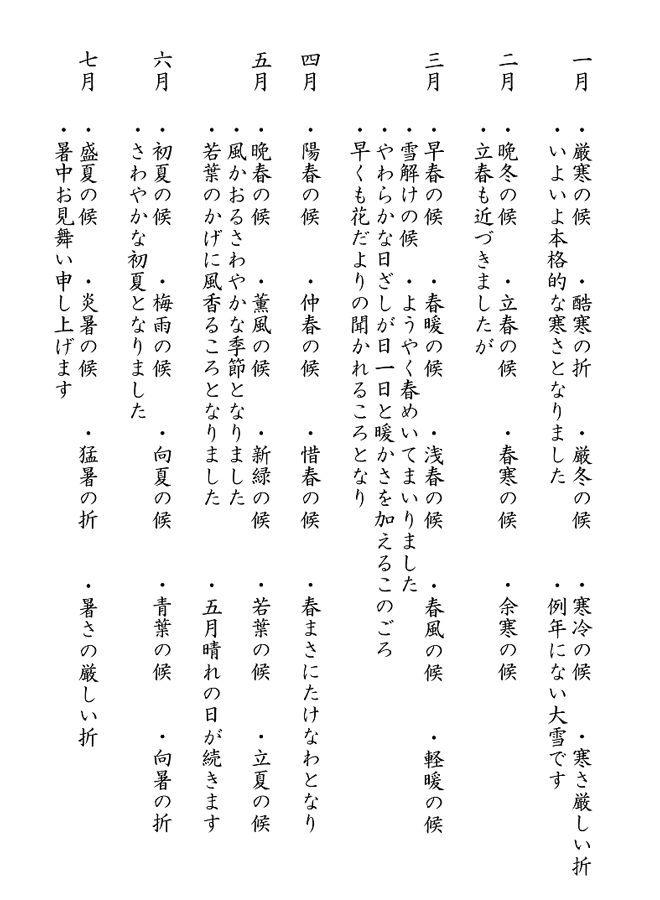 一月 ・厳寒の候 ・酷寒の折 ・厳冬の候 ・寒冷の候 ・寒さ厳しい折
・いよいよ本格的な寒さとなりました ・例年にない大雪です
二月 ・晩冬の候 ・立春の候 ・春寒の候 ・余寒の候
・立春も近づきましたが
三月 ・早春の候 ・春暖の候 ・浅春の候 ・春風の候 ・軽暖の候
・雪解けの候 ・ようやく春めいてまいりました
・やわらかな日ざしが日一日と暖かさを加えるこのごろ
・早くも花だよりの聞かれるころとなり
四月 ・陽春の候 ・仲春の候 ・惜春の候 ・春まさにたけなわとなり
五月 ・晩春の候 ・薫風の候 ・新緑の候 ・若葉の候 ・立夏の候
・風かおるさわやかな季節となりました
・若葉のかげに風香るころとなりました ・五月晴れの日が続きます
六月 ・初夏の候 ・梅雨の候 ・向夏の候 ・青葉の候 ・向暑の折
・さわやかな初夏となりました
七月 ・盛夏の候 ・炎暑の候 ・猛暑の折 ・暑さの厳しい折
・暑中お見舞い申し上げます